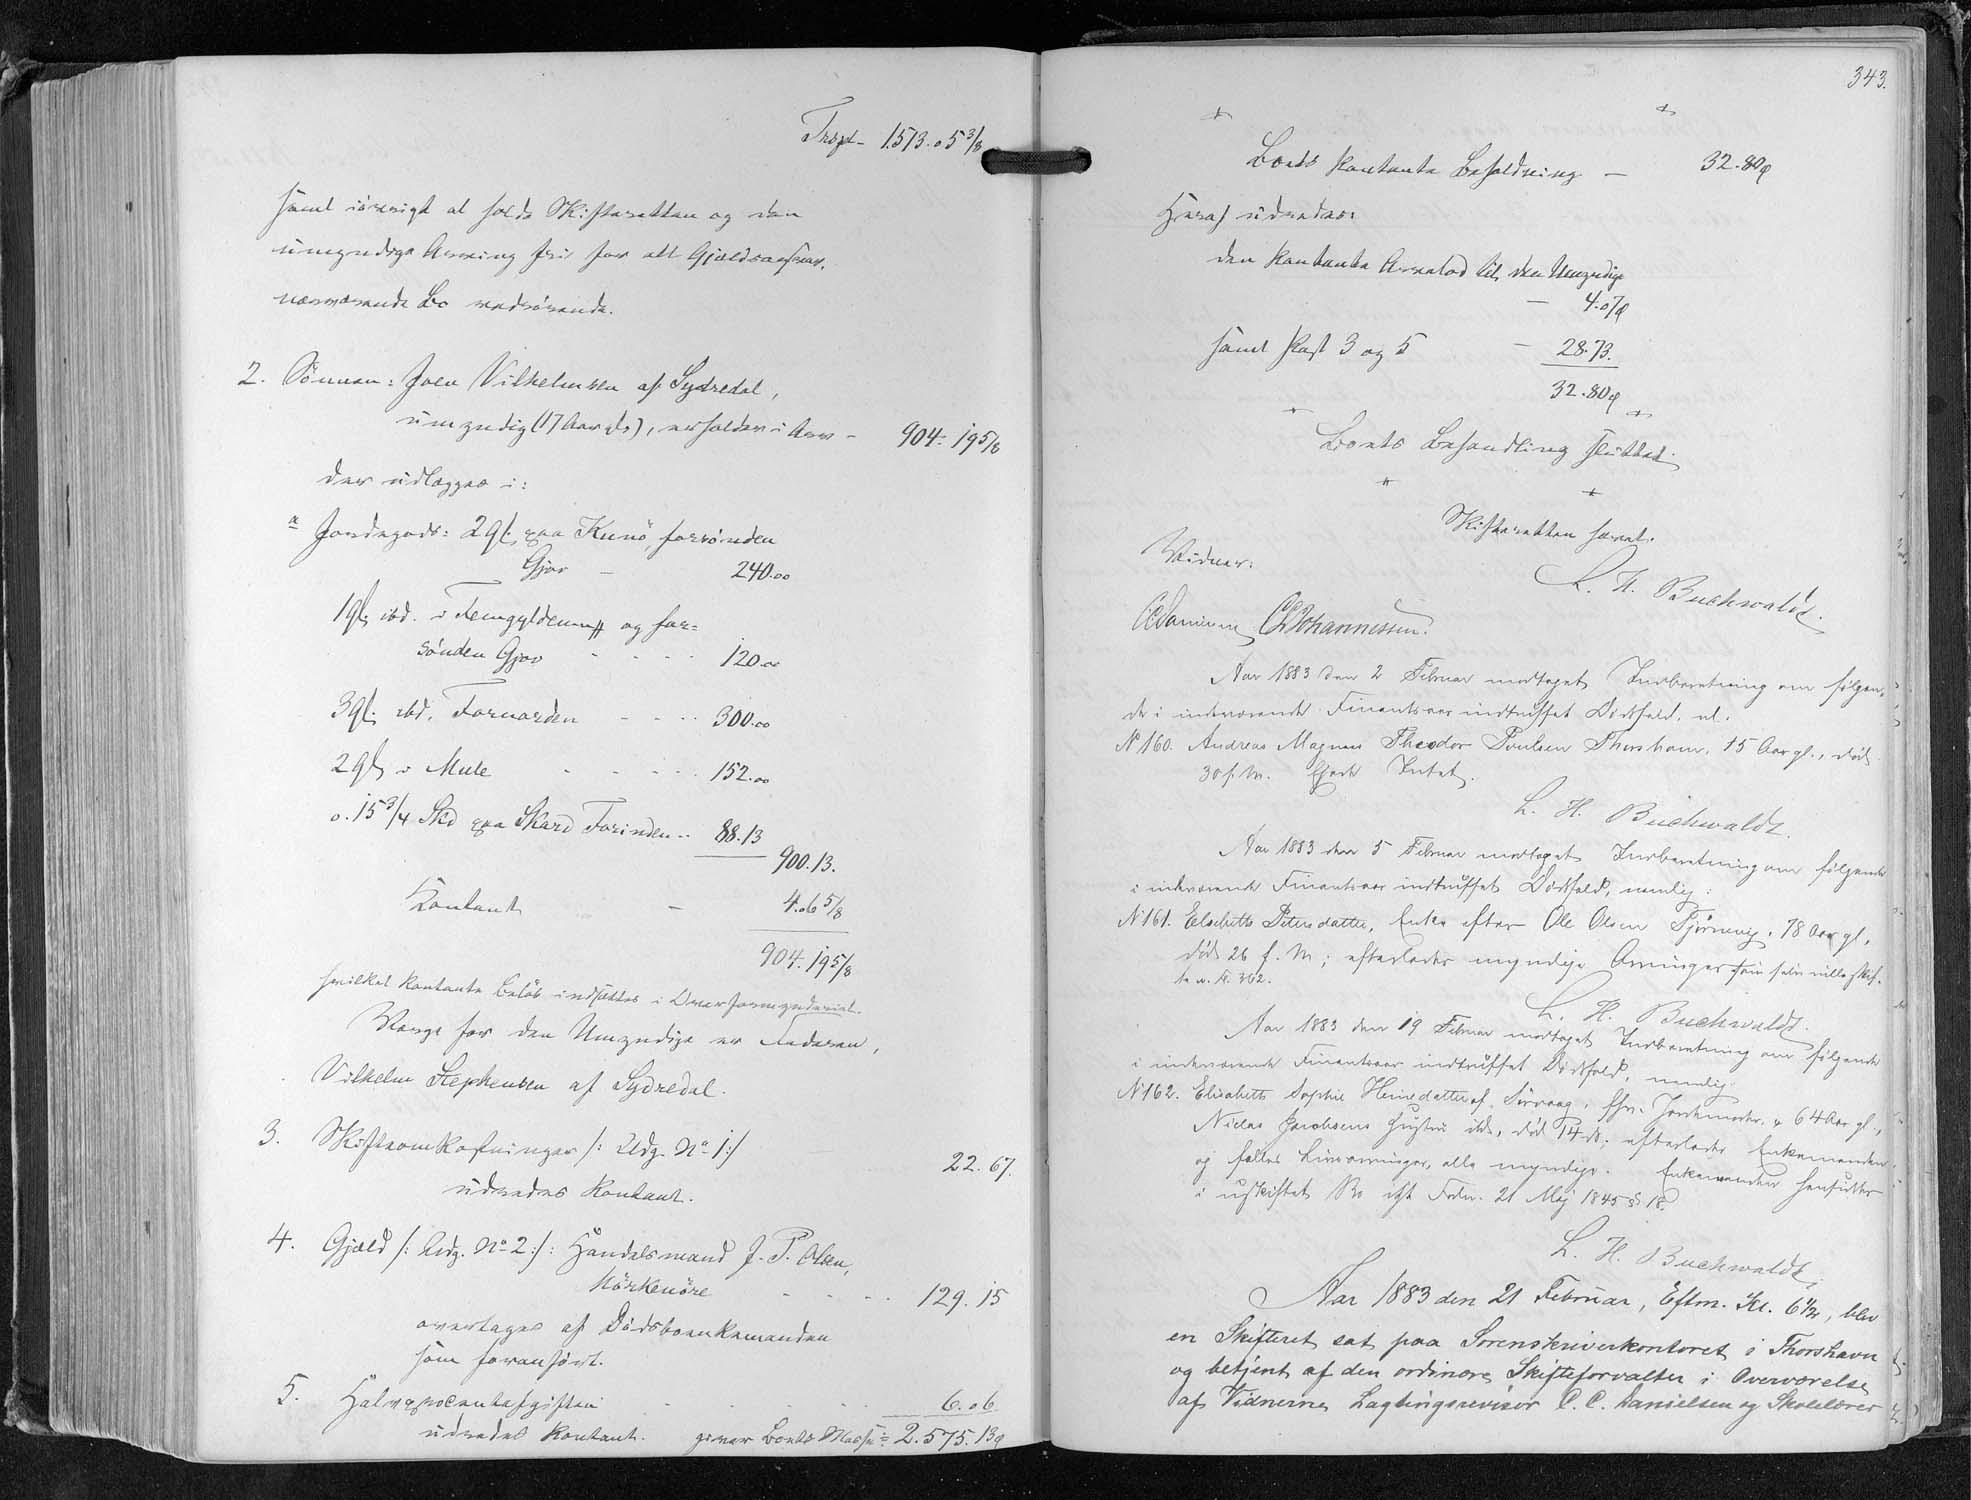 Trspt- 1.513.05 3/8
samt iøvrigt at holde Skifteretten og den
umyndige Arving fri for alt Gjældsansvar,
nærværende Bo vedrørende.
2. Sønnen: Joen Vilhelmsen af Sydredal,
umyndig (17 Aar gl.), erholder i Arv - 904. 19 5/8
der udlægges i:
a Jordegods: 2 gl. paa Kunö, forsönden
Gjov - 240.00
1 gl. ibd. i Femgylden og for=
sönden Gjov - - - - 120.00
3 gl. ibd. Fornorden - - - 300.00
2 gl. i Mule - - - - - 152.00
0.15 3/4 Skd paa Skard Forinden - - 88.13
900.13.
Kontant - 4.06 5/8
904. 19 5/8
hvilket kontante Beløb indsættes i Overformynderiet.
Værge for den Umyndige er Faderen,
Vilhelm Stephensen af Sydredal.
3. Skifteomkostninger /: Udg. No 1 :/ 22. 67.
udredes kontant.
4. Gjæld /: Udg. No 2 :/: Handelsmand J. P. Olsen,
Mörkenöre - - - - 129. 15
overtages af Dødsboenkemanden
som foranført.
5. Halvprocentafgiften - - - - 6. 06
udredes kontant. giver Boets Masse = 2.575. 13 9
343.
Boets kontante Beholdning - 32. 80 9
Heraf udredes:
den kontante Arvelod til den Umyndige
- 4. 07 9
samt Post 3 og 5 - 28. 73.
32. 80 9
Boets Behandling sluttet.
Skifteretten hævet.
Vidner: L. H. Buchwaldt.
CDanielsen Johannessen.
Aar 1883 den 2 Februar modtaget Indberetning om følgen-
de i indeværende Finantsaar indtruffet Dödsfald, nl.
No 160. Andreas Magnus Theodor Poulsen Thorshavn, 15 Aar gl., död
30 f. M. Ejede Intet.
L. H. Buchwaldt.
Aar 1883 den 5 Februar modtaget Indberetning om følgende
i indeværende Finantsaar indtruffet Dödsfald, nemlig:
No 161. Elsebeth Petersdatter, Enke efter Ole Olsen Tjörnevig, 78 Aar gl.,
död 26 f. M; efterlader myndige Arvinger som selv ville skif-
te 362.
L. H. Buchwaldt.
Aar 1883 den 19 Februar modtaget Indberetning om følgende
i indeværende Finantsaar indtruffet Dödsfald, nemlig
No 162. Elisabeth Sophie Heinedatter af Sörvaag, 64 Aar gl.,
Niclas Jacobsens Hustru ibd., död 14 ds; efterlader Enkemanden
og fælles Livsarvinger, alle myndige. Enkemanden hensidder
i uskiftet Bo Frdn. 21 Maj 1845 § 18.
L. H. Buchwaldt.
Aar 1883 den 21 Februar, Eftm. Kl. 6 1/2, blev
en Skifteret sat paa Sorenskriverkontoret i Thorshavn
og betjent af den ordinære Skifteforvalter i Overværelse
af Vidnerne Lagtingsrevisor C. C. Danielsen og Skolelærer